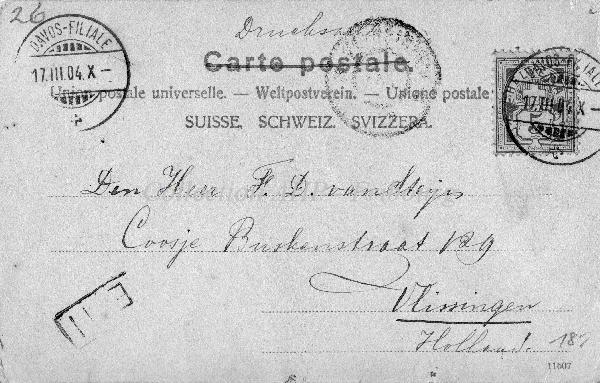 26
Drucksache
Carte postale.
Union postale universelle. — Weltpostverein. — Unione postale
SUISSE. SCHWEIZ. SVIZZERA.
DAVOS-FILIALE
17.III.04.X—
DAVOS-FILIALE
17.III.04.X—
Den Heer F. D. van
Coosje Buskenstraat 129
Vlissingen
Holland.
11607